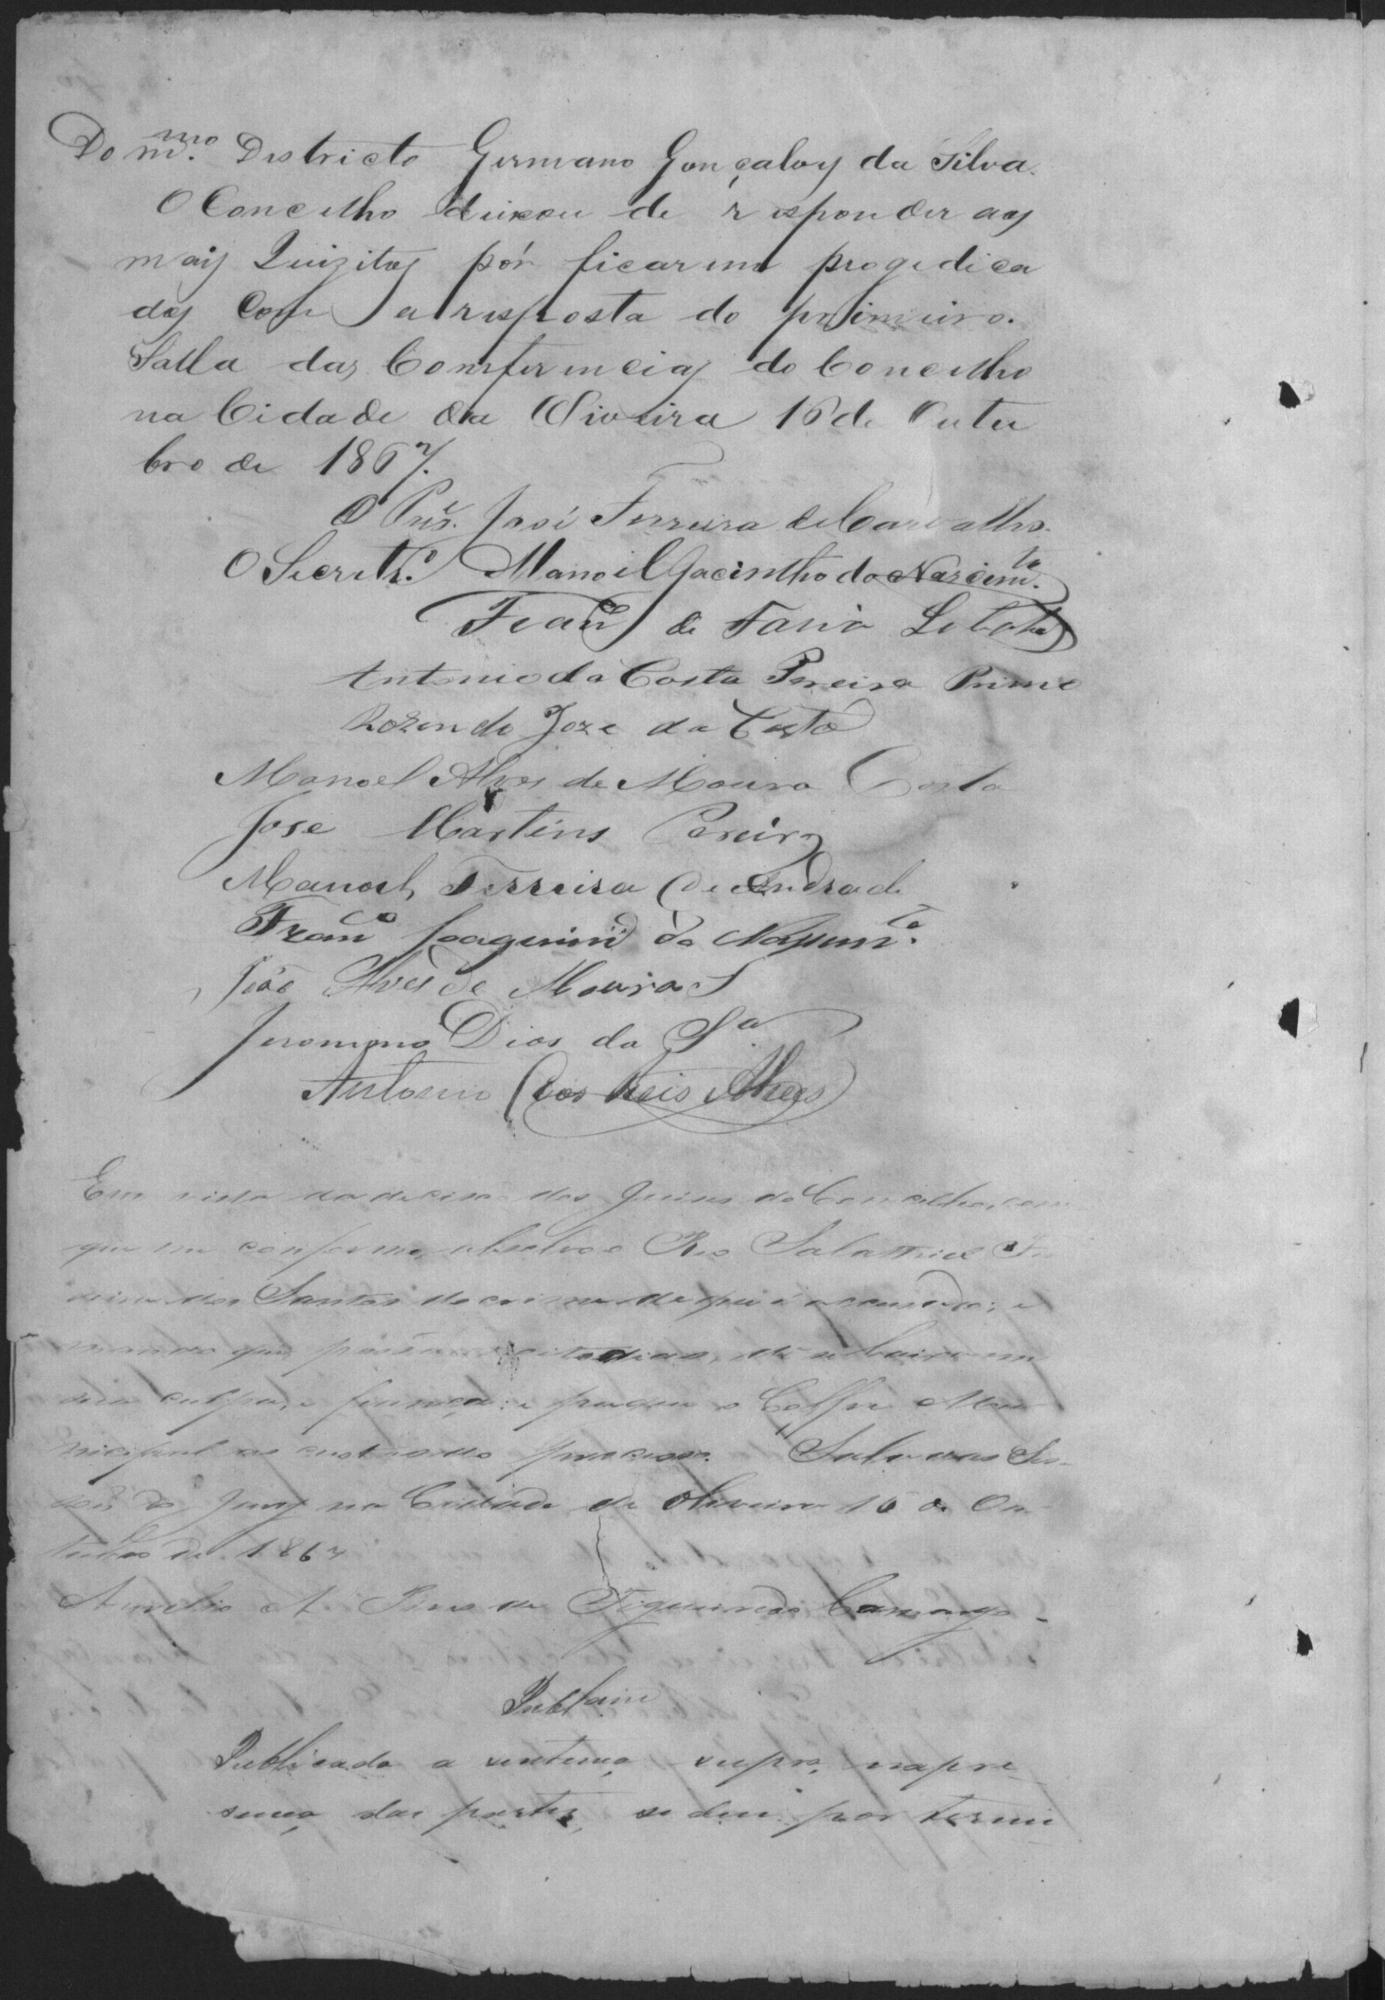 Do m.mo Districto Germano Gonçalvez da Silva.
O Concelho deixou de responder aos
mais Quizitos pór ficarem progedica
dos com a resposta do primeiro.
Salla das Comferencias do Concelho
na Cidade da Oliveira 16 de Outu
bro de 1867.
O Prés. José Ferreira de Carvalho.
O Secretr.o Manoel Jacintho do Nascim.to
Fran.co de Faria Lobato
Antonio da Costa Pereira Primo
Rozendo Joze da Costa
Manoel Alves de Moura Costa
Jose Martins Pereira
Manoel Ferreira de Andrade
Fran.co Joaquim do Nassim.to
João Alves de Moura S
Jeronimo Dias da S.a
Antonio dos Reis Alves
Em vista da decisão dos Juises do Concelho, com
que me conformo, absolvo o Reo
dos Santos do crime de que é accusado; e
mando que
culpa, e fiança; e pague o Coffre Mu
nicipal as custas do processo. Sala das Ses
sões do Jury na Cidade da Oliveira 16 de Ou
tubro de 1867
Aurelio A. Pires de Figueiredo Camargo
Publicam
Publicada a sentença supra, na pre
sença das partes, se deu por termi